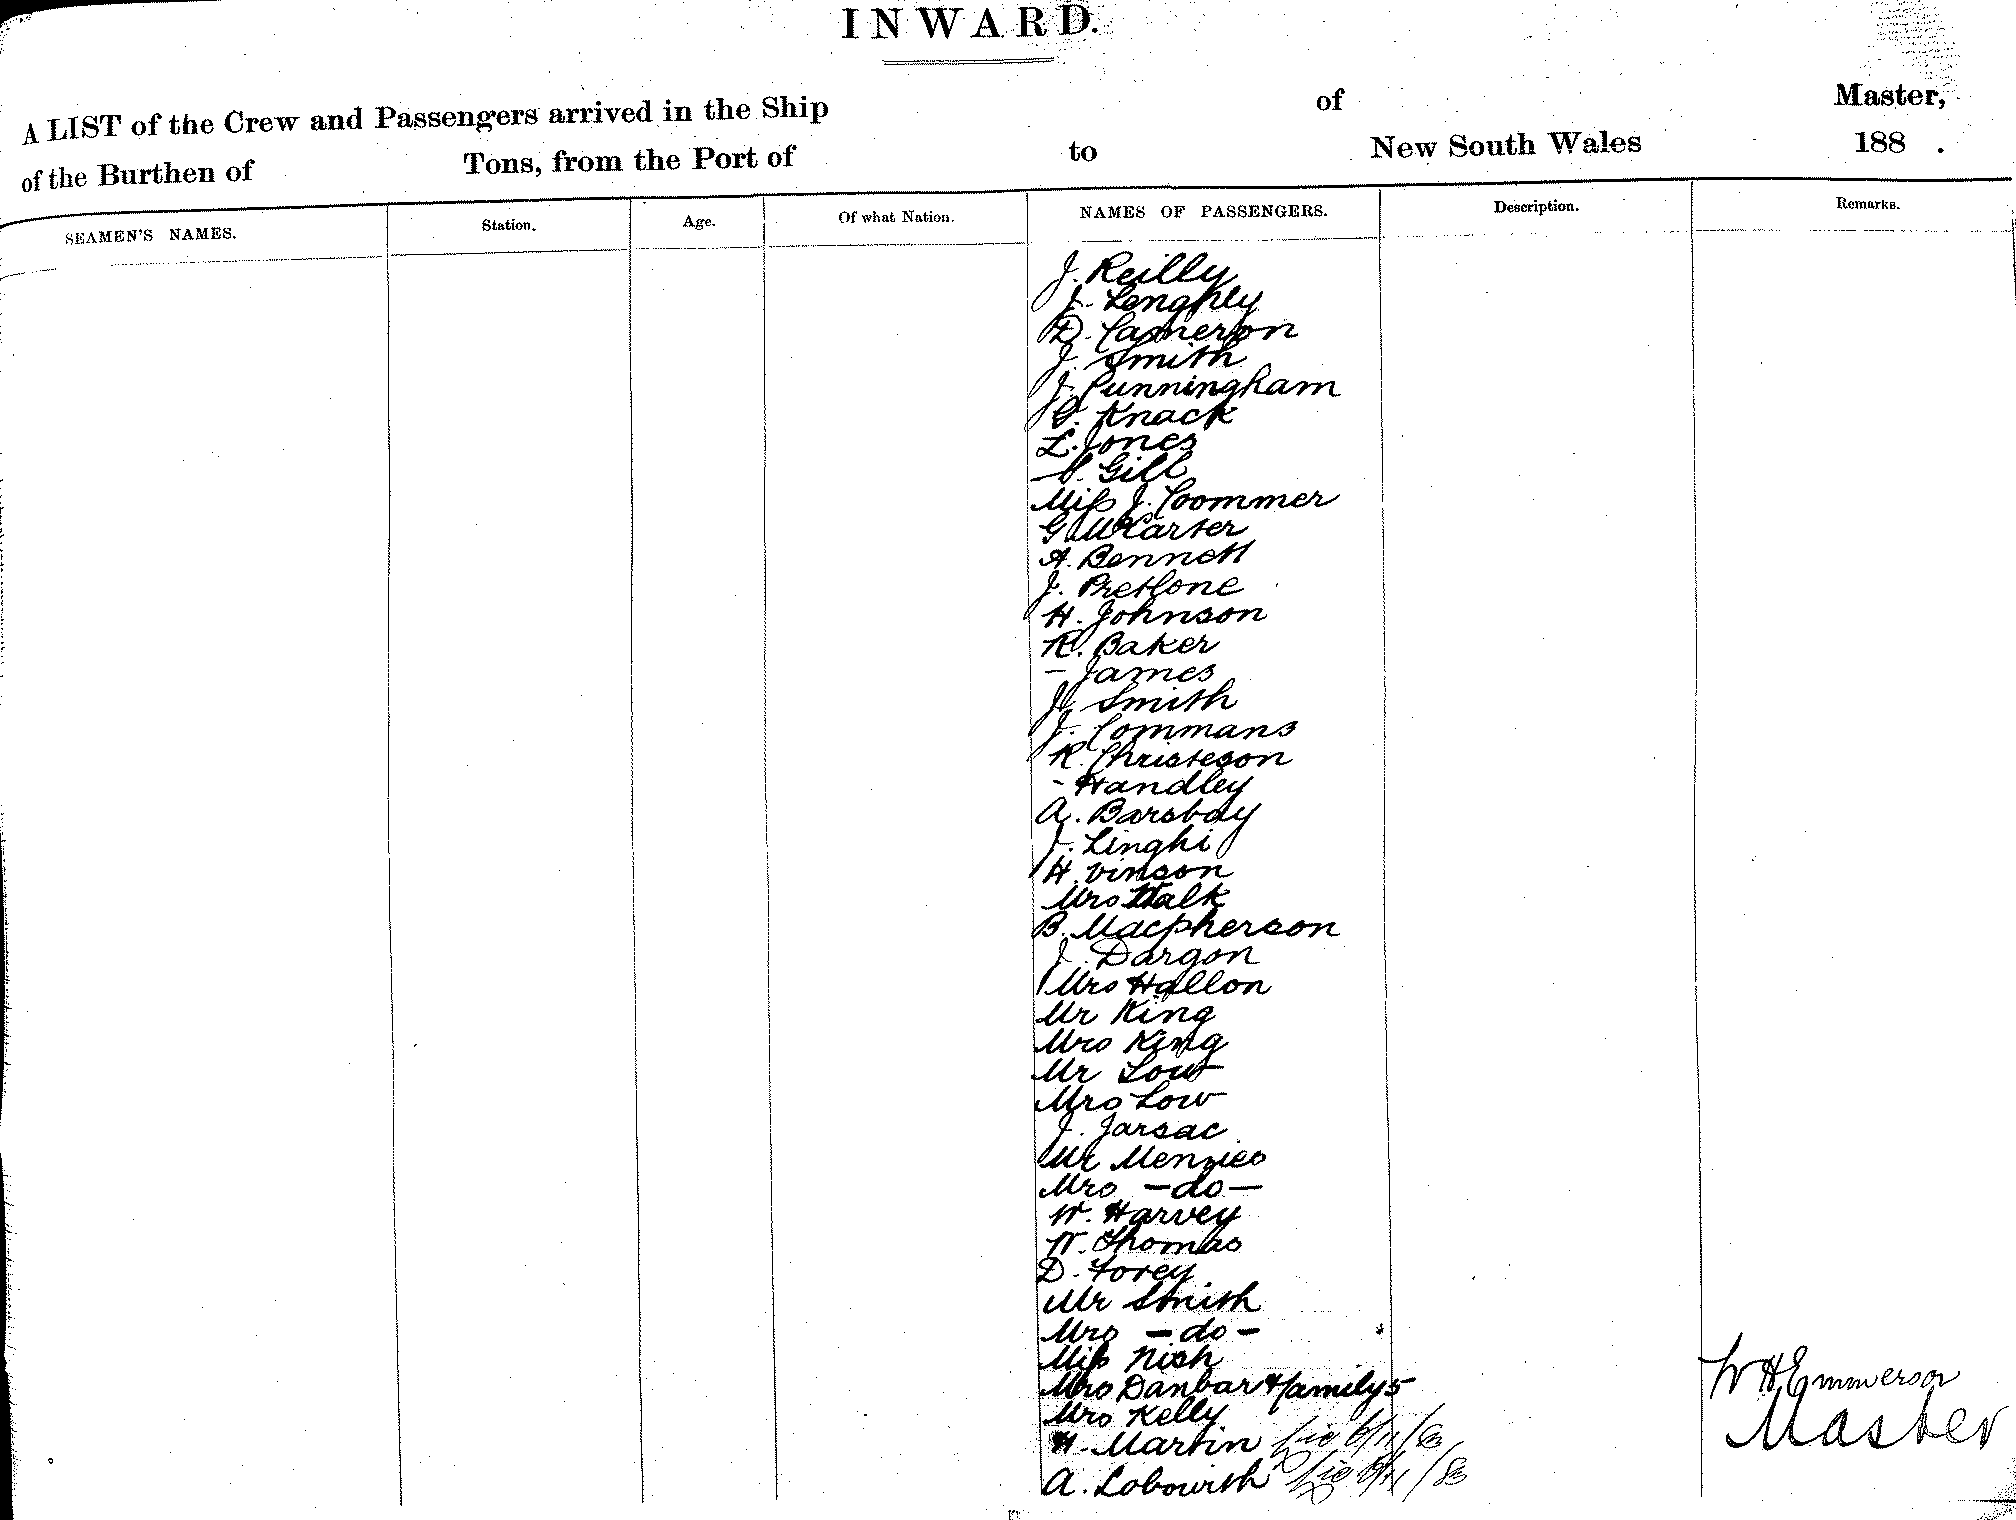 INWARD.
A LIST of the Crew and Passengers arrived in the Ship of Master,
of the Burthen of Tons, from the Port of to New South Wales 188 .
SEAMEN'S NAMES. Station. Age. Of what Nation. NAMES OF PASSENGERS. Description. Remarks.
J. Reilly
J. Lenghley
D. Cameron
J. Smith
J. Cunningham
G. Knack
L. Jones
Gill
Miss J. Coommer
G McCarter
A. Bennett
J. Prethone
H. Johnson
R. Baker
- James
J. Smith
J. Commans
R. Christeson
- Handley
A. Barsbay
J. Linghi
H. Vinson
Mrs Walk
B. Macpherson
J. Dargon
Mrs Hallon
Mr King
Mrs King
Mr Low
Mrs Low
J. Jarsac
Mr Menzies
Mrs -do-
W. Harvey
W. Thomas
D. Forey
Mr Smith
Mrs -do-
Miss Nish
Mrs Danbar & family 5
Mrs Kelly
H. Martin
A. Lobowith
W H Emmerson
Master